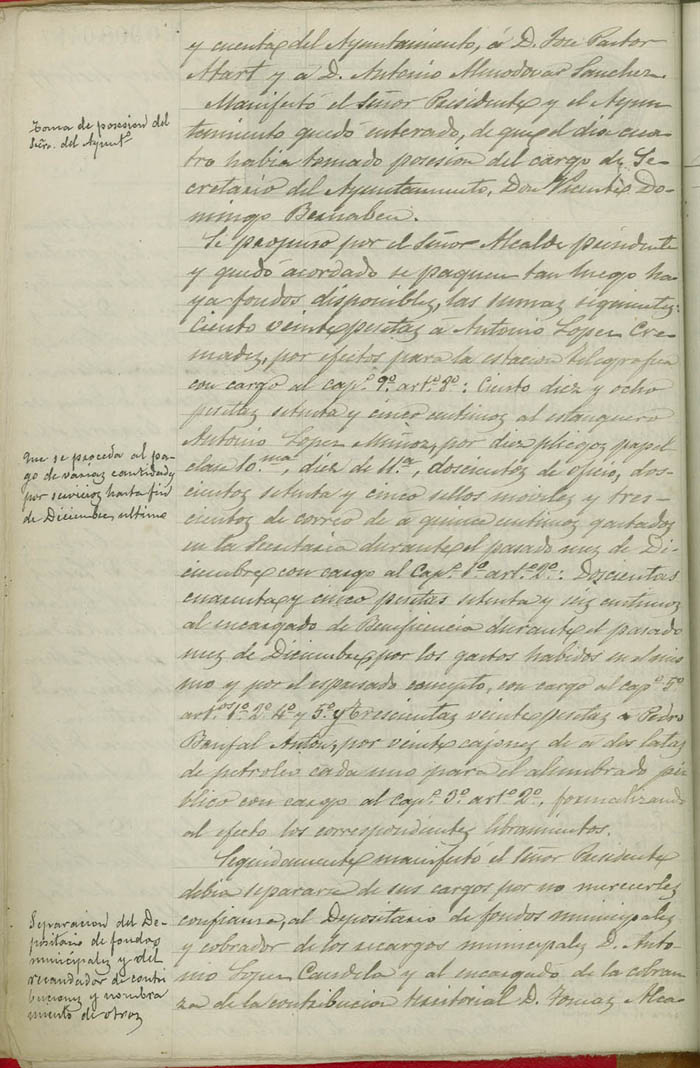 y cuentas del Ayuntamiento, á D. Jose Pastor
Atart y á D. Antonio Almodovar Sanchez.
Toma de posesion del
Scro. del Ayuntº
Manifestó el Señor Presidente y el Ayun
tamiento quedó enterado, de que el dia cua
tro habia tomado posesion del cargo de Se-
cretario del Ayuntamiento, Don Vicente Do-
mingo Bernabeu.
Se propuso por el Señor Alcalde presidente
y quedó acordado se paguen tan luego ha
ya fondos disponibles, las sumas siguientes:
Ciento veinte pesetas a Antonio Lopez Cre-
mades, por efectos para la estacion telegrafica
con cargo al cap.º 9º artº 8º: Ciento diez y ocho
pesetas setenta y cinco centimos al estanquero
Que se proceda al pa-
go de varias cantidades
por servicios hasta fin
de Diciembre ultimo
Antonio Lopez Muñoz, por diez pliegos papel
clase 10.ma, diez de 11.a, doscientos de oficio, dos-
cientos setenta y cinco sellos moviles y tres-
cientos de correo de á quince centimos gastados
en la Secretaria durante el pasado mes de Di-
ciembre con cargo al Cap.º 1º artº 2º: Doscientas
cuarenta y cinco pesetas setenta y seis centimos
al encargado de Beneficencia durante el pasado
mes de Diciembre, por los gastos habidos en el mis
mo y por el espresado concepto, con cargo al capº 5º
art.os 1º 2º 4º y 5º y Trescientas veinte pesetas a Pedro
Antón, por veinte cajones de á dos latas
de petroleo cada uno para el alumbrado pú
blico con cargo al Cap.º 3º artº 2º, formalizando
al efecto los correspondientes libramientos.
Seguidamente manifestó el señor Presidente
Separacion del De-
positario de fondos
municipales y del
recaudador de contri
buciones y nombra
miento de otros
debia separarse de sus cargos por no merecerles
confianza, al Depositario de fondos municipales
y cobrador de los recargos municipales D. Anto-
nio Lopez Candela y al encargado de la cobran
za de la contribucion territorial D. Tomas Alca-